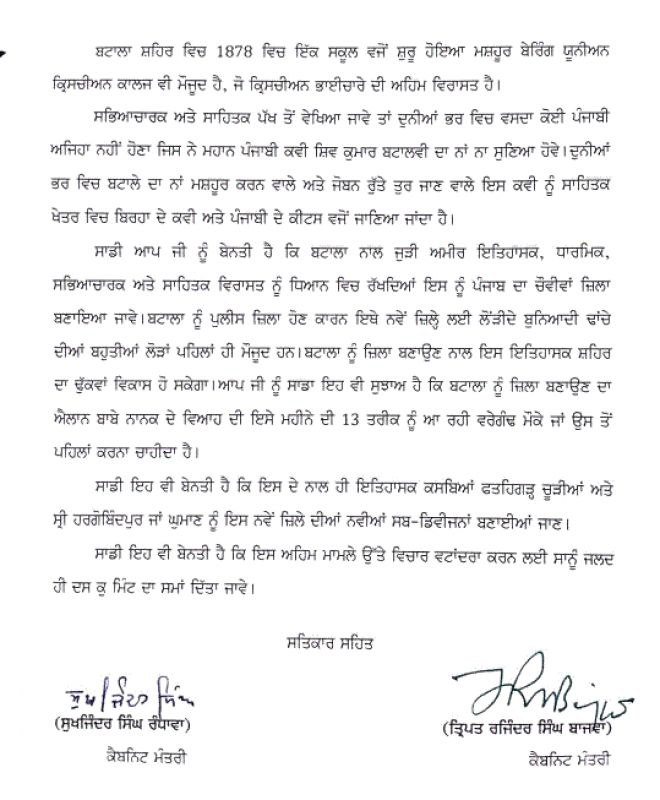 ਬਟਾਲਾ ਸ਼ਹਿਰ ਵਿਚ 1878 ਵਿਚ ਇੱਕ ਸਕੂਲ ਵਜੋਂ ਸ਼ੁਰੂ ਹੋਇਆ ਮਸ਼ਹੂਰ ਬੇਰਿੰਗ ਯੂਨੀਅਨ
ਕ੍ਰਿਸਚੀਅਨ ਕਾਲਜ ਵੀ ਮੌਜੂਦ ਹੈ, ਜੋ ਕ੍ਰਿਸਚੀਅਨ ਭਾਈਚਾਰੇ ਦੀ ਅਹਿਮ ਵਿਰਾਸਤ ਹੈ।
ਸਭਿਆਚਾਰਕ ਅਤੇ ਸਾਹਿਤਕ ਪੱਖ ਤੋਂ ਵੇਖਿਆ ਜਾਵੇ ਤਾਂ ਦੁਨੀਆਂ ਭਰ ਵਿਚ ਵਸਦਾ ਕੋਈ ਪੰਜਾਬੀ
ਅਜਿਹਾ ਨਹੀਂ ਹੋਣਾ ਜਿਸ ਨੇ ਮਹਾਨ ਪੰਜਾਬੀ ਕਵੀ ਸ਼ਿਵ ਕੁਮਾਰ ਬਟਾਲਵੀ ਦਾ ਨਾਂ ਨਾ ਸੁਣਿਆ ਹੋਵੇ।ਦੁਨੀਆਂ
ਭਰ ਵਿਚ ਬਟਾਲੇ ਦਾ ਨਾਂ ਮਸ਼ਹੂਰ ਕਰਨ ਵਾਲੇ ਅਤੇ ਜੋਬਨ ਰੁੱਤੇ ਤੁਰ ਜਾਣ ਵਾਲੇ ਇਸ ਕਵੀ ਨੂੰ ਸਾਹਿਤਕ
ਖੇਤਰ ਵਿਚ ਬਿਰਹਾ ਦੇ ਕਵੀ ਅਤੇ ਪੰਜਾਬੀ ਦੇ ਕੀਟਸ ਵਜੋਂ ਜਾਣਿਆ ਜਾਂਦਾ ਹੈ।
ਸਾਡੀ ਆਪ ਜੀ ਨੂੰ ਬੇਨਤੀ ਹੈ ਕਿ ਬਟਾਲਾ ਨਾਲ ਜੁੜੀ ਅਮੀਰ ਇਤਿਹਾਸਕ, ਧਾਰਮਿਕ,
ਸਭਿਆਚਾਰਕ ਅਤੇ ਸਾਹਿਤਕ ਵਿਰਾਸਤ ਨੂੰ ਧਿਆਨ ਵਿਚ ਰੱਖਦਿਆਂ ਇਸ ਨੂੰ ਪੰਜਾਬ ਦਾ ਚੌਵੀਵਾਂ ਜ਼ਿਲਾ
ਬਣਾਇਆ ਜਾਵੇ।ਬਟਾਲਾ ਨੂੰ ਪੁਲੀਸ ਜ਼ਿਲਾ ਹੋਣ ਕਾਰਨ ਇਥੇ ਨਵੇਂ ਜ਼ਿਲ੍ਹੇ ਲਈ ਲੋੜੀਂਦੇ ਬੁਨਿਆਦੀ ਢਾਂਚੇ
ਦੀਆਂ ਬਹੁਤੀਆਂ ਲੋੜਾਂ ਪਹਿਲਾਂ ਹੀ ਮੌਜੂਦ ਹਨ।ਬਟਾਲਾ ਨੂੰ ਜ਼ਿਲਾ ਬਣਾਉਣ ਨਾਲ ਇਸ ਇਤਿਹਾਸਕ ਸ਼ਹਿਰ
ਦਾ ਢੁੱਕਵਾਂ ਵਿਕਾਸ ਹੋ ਸਕੇਗਾ।ਆਪ ਜੀ ਨੂੰ ਸਾਡਾ ਇਹ ਵੀ ਸੁਝਾਅ ਹੈ ਕਿ ਬਟਾਲਾ ਨੂੰ ਜ਼ਿਲਾ ਬਣਾਉਣ ਦਾ
ਐਲਾਨ ਬਾਬੇ ਨਾਨਕ ਦੇ ਵਿਆਹ ਦੀ ਇਸੇ ਮਹੀਨੇ ਦੀ 13 ਤਰੀਕ ਨੂੰ ਆ ਰਹੀ ਵਰੇਗੰਢ ਮੌਕੇ ਜਾਂ ਉਸ ਤੋਂ
ਪਹਿਲਾਂ ਕਰਨਾ ਚਾਹੀਦਾ ਹੈ।
ਸਾਡੀ ਇਹ ਵੀ ਬੇਨਤੀ ਹੈ ਕਿ ਇਸ ਦੇ ਨਾਲ ਹੀ ਇਤਿਹਾਸਕ ਕਸਬਿਆਂ ਫਤਹਿਗੜ੍ਹ ਚੂੜੀਆਂ ਅਤੇ
ਸ੍ਰੀ ਹਰਗੋਬਿੰਦਪੁਰ ਜਾਂ ਘੁਮਾਣ ਨੂੰ ਇਸ ਨਵੇਂ ਜ਼ਿਲੇ ਦੀਆਂ ਨਵੀਆਂ ਸਬ-ਡਿਵੀਜਨਾਂ ਬਣਾਈਆਂ ਜਾਣ।
ਸਾਡੀ ਇਹ ਵੀ ਬੇਨਤੀ ਹੈ ਕਿ ਇਸ ਅਹਿਮ ਮਾਮਲੇ ਉੱਤੇ ਵਿਚਾਰ ਵਟਾਂਦਰਾ ਕਰਨ ਲਈ ਸਾਨੂੰ ਜਲਦ
ਹੀ ਦਸ ਕੁ ਮਿੰਟ ਦਾ ਸਮਾਂ ਦਿੱਤਾ ਜਾਵੇ।
ਸਤਿਕਾਰ ਸਹਿਤ
(ਸੁਖਜਿੰਦਰ ਸਿੰਘ ਰੰਧਾਵਾ)
(ਤ੍ਰਿਪਤ ਰਜਿੰਦਰ ਸਿੰਘ ਬਾਜਵਾ)
ਕੈਬਨਿਟ ਮੰਤਰੀ
ਕੈਬਨਿਟ ਮੰਤਰੀ